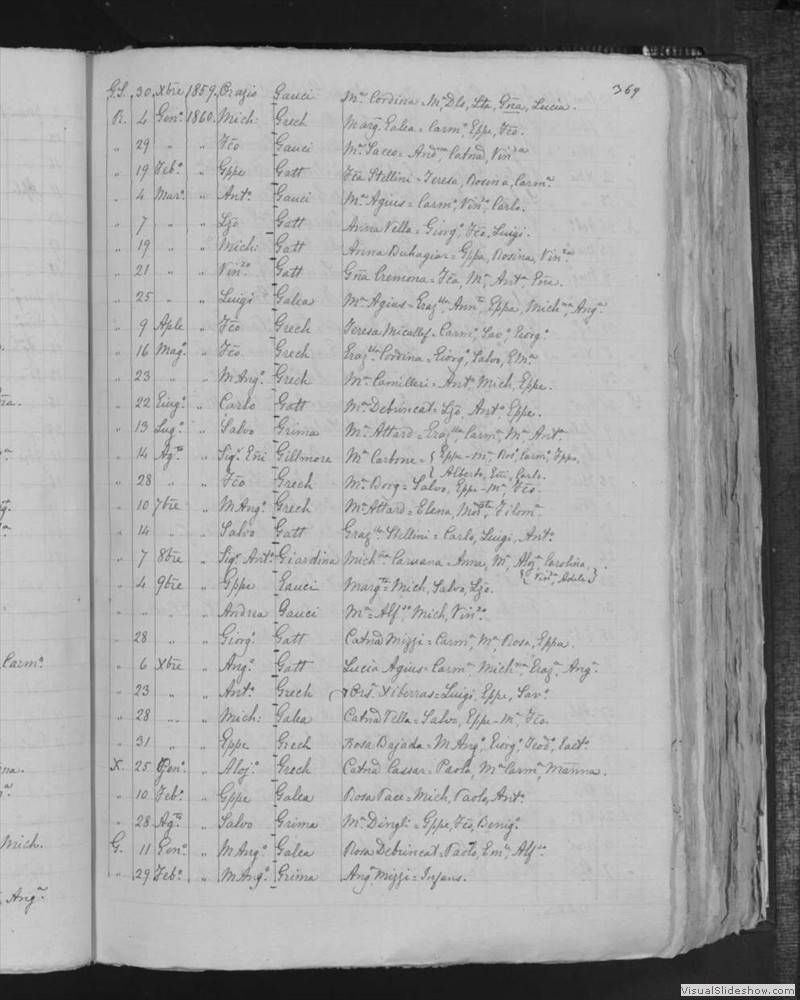 369
G.S. 30 Xbre 1859. Orazio Gauci Mª Cordina = Mª Dls, Lte, Gña, Lucia.
R. 4 Genº 1860. Mich: Grech Margª Galea = Carmº, Gppe, Fčo.
" 29 " " Fčo Gauci Mª Sacco = Andª, Catnā, Vinza
" 19 Febº " Gppe Gatt Fča Stellini = Teresa, Rosina, Carmª
" 4 Marº " Antº Gauci Mª Agius = Carmº, Vinº, Carlo.
" 7 " " Ljō Gatt Anna Vella = Giorgº, Fčo, Luigi.
" 19 " " Mich: Gatt Anna Buhagiar = Gppa, Rosina, Vinza
" 21 " " Vinzo Gatt Gña Cremona = Fča, Mª, Antª
" 25 " " Luigi Galea Mª Agius = Grazlla, Annta, Gppa, Michna, Angª
" 9 Aple " Fčo Grech Teresa Micallef = Carmº, Savº, Giorgº
" 16 Magº " Fčo Grech Grazlla Cordina = Giorgº, Salvo, Emª
" 23 " " M Angº Grech Mª Camilleri = Antª, Mich, Gppe.
" 22 Giugº " Carlo Gatt Mª Debrincat = Ljō, Antº, Gppe.
" 13 Lugº " Salvo Grima Mª Attard = Grazlla, Carmª, Mª, Antª
" 14 Agto " Sigr Gillmore Mª Carbone = { Gppe - Mª Carmª, Gppa,
{ Alberto, Carlo.
" 28 " " Fčo Grech Mª Borg = Salvo, Gppe - Mª, Fčo.
" 10 7bre " M Angº Grech Mª Attard = Elena, Modta, Filomª
" 14 " " Salvo Gatt Grazlla Stellini = Carlo, Luigi, Antº
" 7 8bre " Sigr Antº Giardina Michna Caruana = Anna, Mª, Alojª, Carolina,
{ Vinza, Adele, }
" 4 9bre " Gppe Gauci Margta = Mich, Salvo, Ljō.
" " " " Andrea Gauci Mª = Alfso, Mich, Vinzo
" 28 " " Giorgº Gatt Catnā Mizzi = Carmª, Mª, Rosa, Gppa.
" 6 Xbre " Angº Gatt Lucia Agius = Carmª, Michna, Grazª, Angª
" 23 " " Antº Grech Orsª Xiberras = Luigi, Gppe, Savº
" 28 " " Mich: Galea Catnā Vella = Salvo, Gppe - Mª, Fčo.
" 31 " " Gppe Grech Rosa Bajada = M Angº, Giorgº, Teodº, Gaetº
X. 25 Genº " Alojº Grech Catnā Cassar = Paola, Mª Carmª, Marina.
" 10 Febº " Gppe Galea Rosa Pace = Mich, Paolo, Antº
" 28 Agto " Salvo Grima Mª Dingli = Gppe, Fčo, Benigº
G. 11 Genº " M Angº Galea Rosa Debrincat = Paolo, Emle, Alfso
" 29 Febº " M Angº Grima Angª Mizzi = Infans.
Carmº
Mich.
Angª
VisualSlideshow.com